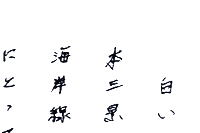 白い
本三景
海岸線
にとって